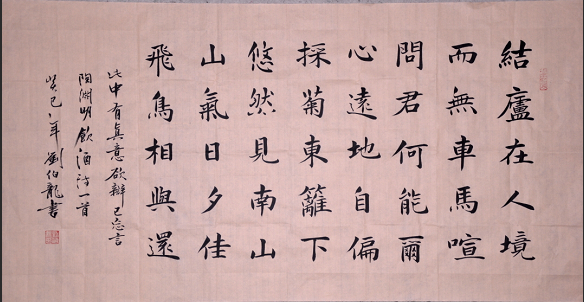 結廬在人境
而無車馬喧
問君何能爾
心遠地自偏
採菊東籬下
悠然見南山
山氣日夕佳
飛鳥相與還
此中有真意欲辯已忘言
陶淵明飲酒詩一首
癸巳年劉伯龍書